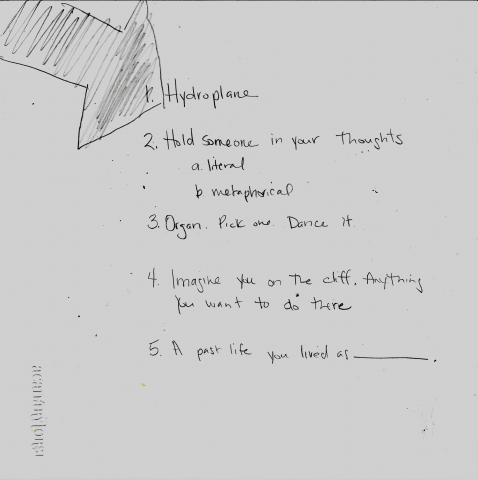 1. Hydroplane
2. Hold someone in your thoughts
a. literal
b. metaphorical
3. Organ. Pick one. Dance it.
4. Imagine you on the cliff. Anything
you want to do there
5. A past life you lived as ________.